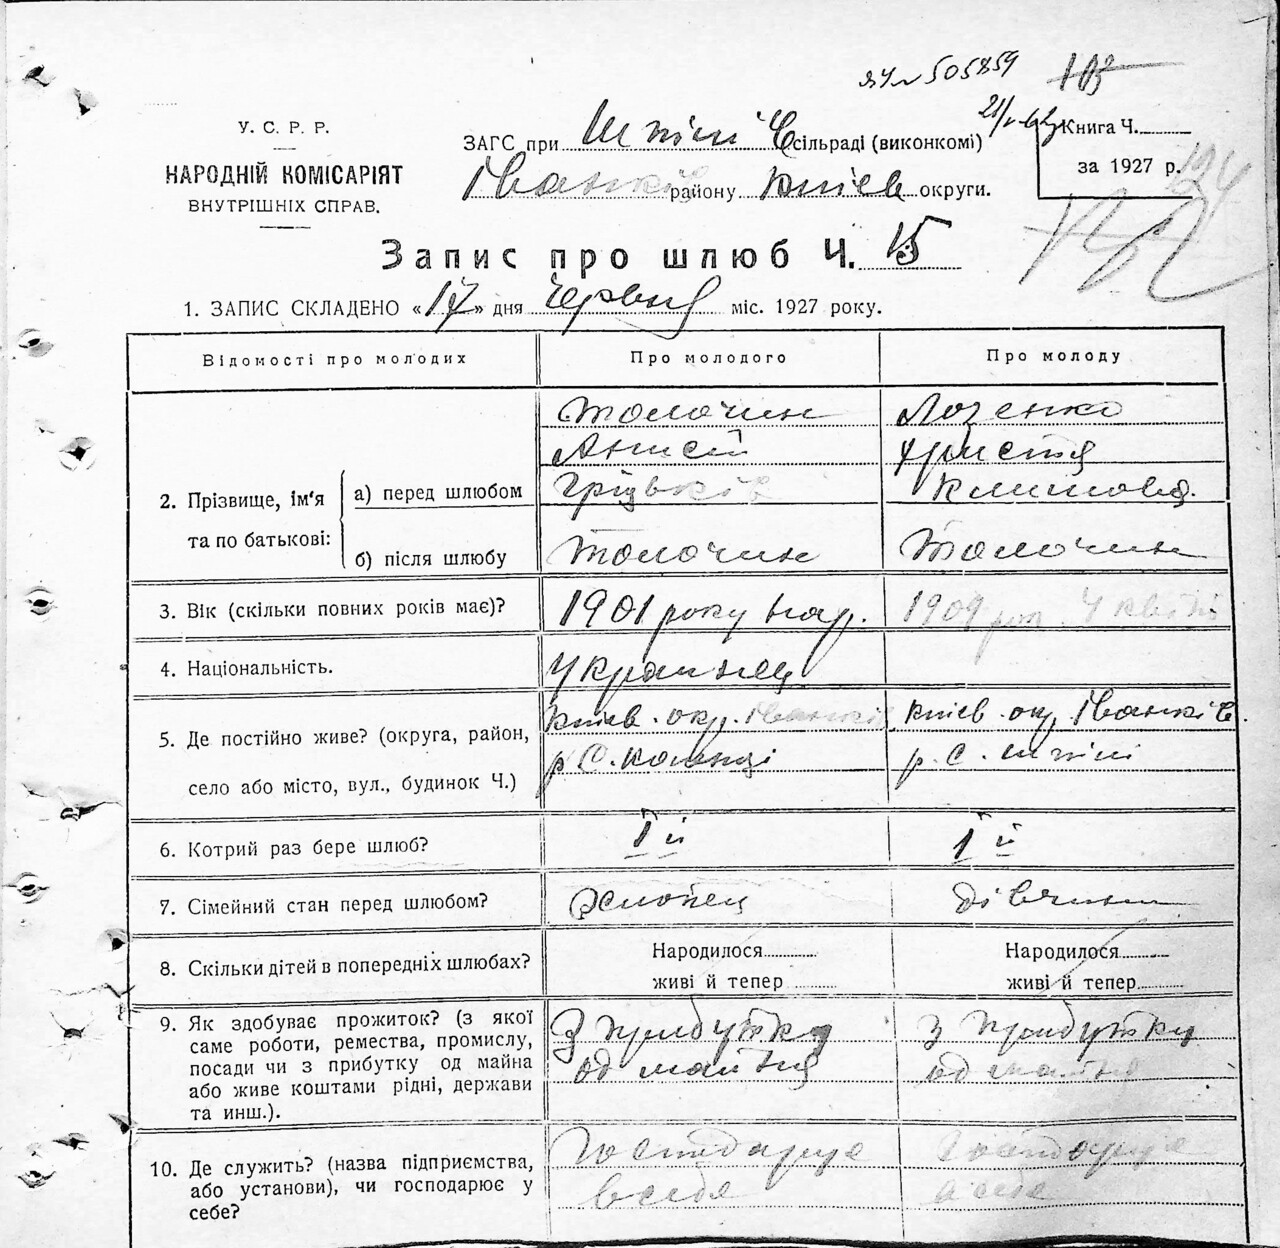 505859
У. С. Р. Р.
НАРОДНІЙ КОМІСАРІЯТ
ВНУТРІШНІХ СПРАВ.
ЗАГС при Шпілі сільраді (виконкомі)
Іванків району Київ округи.
Книга Ч.
за 1927 р.
Запис про шлюб Ч. 15
1. ЗАПИС СКЛАДЕНО «17» дня Червня міс. 1927 року.
Відомості про молодих
Про молодого
Про молоду
2. Прізвище, ім'я та по батькові:
а) перед шлюбом
Толочин
Анисій
Лозенко
Христя
Климова
б) після шлюбу
Толочин
Толочин
3. Вік (скільки повних років має)?
1901 року нар.
1909 рок. 4 квітня
4. Національність.
Українец
5. Де постійно живе? (округа, район,
село або місто, вул., будинок Ч.)
Київ. окр. Іванків
р С.
Київ. окр Іванків.
р. С. Шпілі
6. Котрий раз бере шлюб?
1й
1й
7. Сімейний стан перед шлюбом?
Хлопец
Дівчина
8. Скільки дітей в попередніх шлюбах?
Народилося
живі й тепер
Народилося
живі й тепер
9. Як здобуває прожиток? (з якої
саме роботи, ремества, промислу,
посади чи з прибутку од майна
або живе коштами рідні, держави
та инш.).
З прибутку
од майна
З прибутку
од майна
10. Де служить? (назва підприємства,
або установи), чи господарює у
себе?
Господарує
в себе
Господарує
в себе